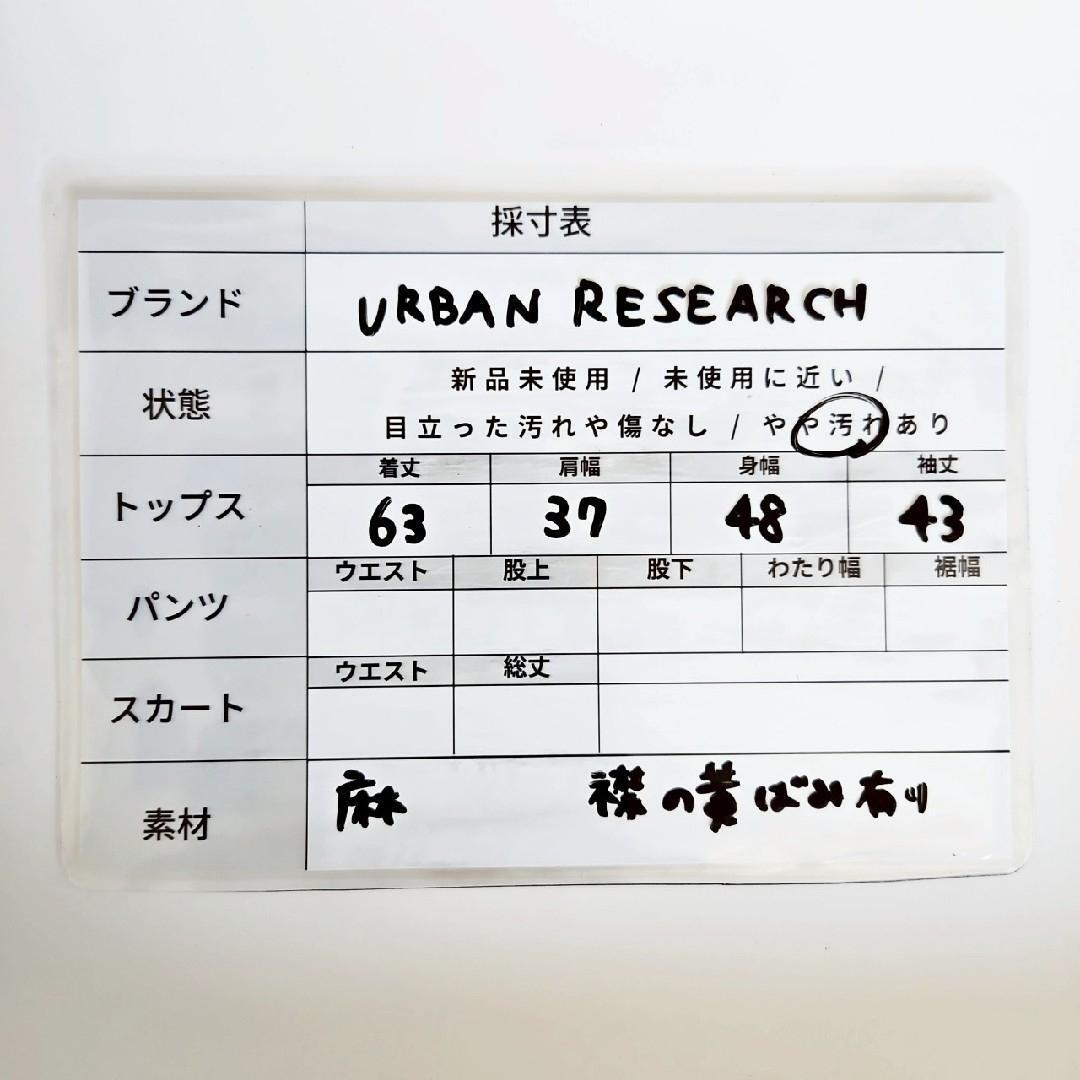 採寸表
ブランド URBAN RESEARCH
状態 新品未使用 / 未使用に近い /
目立った汚れや傷なし / やや汚れあり
トップス 着丈 肩幅 身幅 袖丈
63 37 48 43
パンツ ウエスト 股上 股下 わたり幅 裾幅
スカート ウエスト 総丈
素材 麻 襟の黄ばみ有り